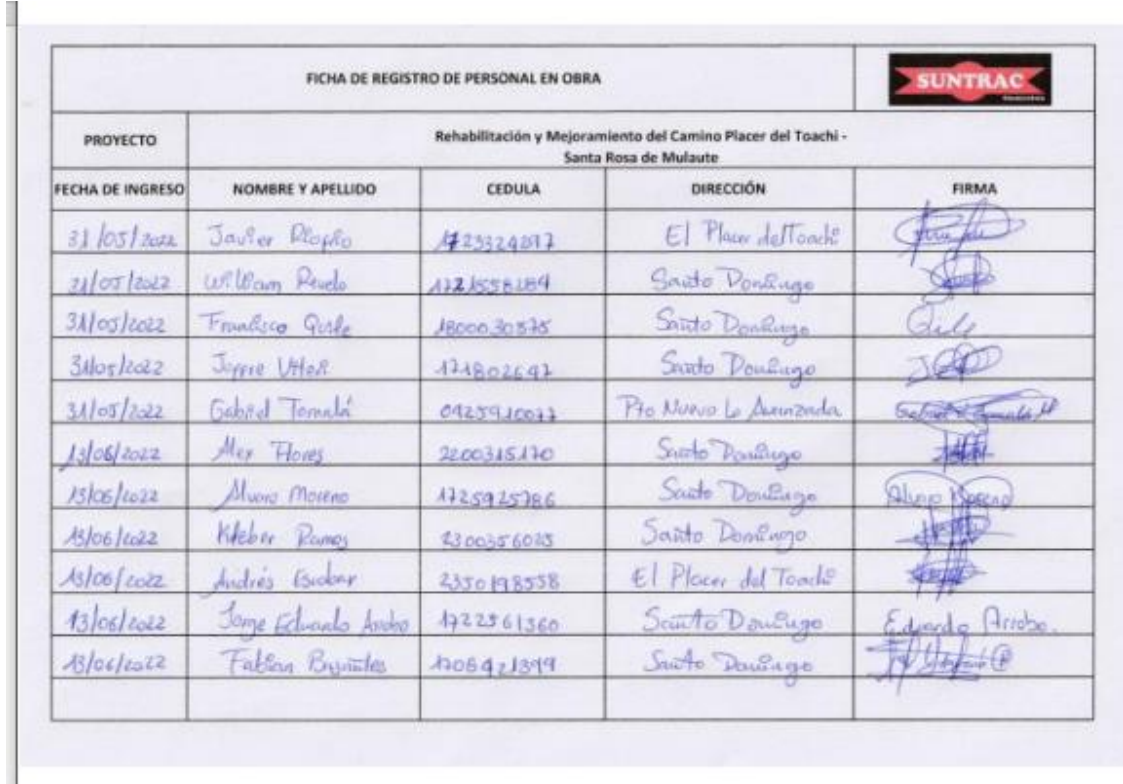 FICHA DE REGISTRO DE PERSONAL EN OBRA SUNTRAC
PROYECTO Rehabilitación y Mejoramiento del Camino Placer del Toachi -
Santa Rosa de Mulaute
FECHA DE INGRESO NOMBRE Y APELLIDO CEDULA DIRECCIÓN FIRMA
31/05/2022 Javier El Placer del Toachi
31/05/2022 William Santo Domingo
31/05/2022 Francisco Santo Domingo
31/05/2022 Santo Domingo
31/05/2022 Gabriel Tomalá Pto Nuevo La Avanzada
13/06/2022 Alex Flores 2200315170 Santo Domingo
13/06/2022 Alvaro Moreno 1725925786 Santo Domingo Alvaro Moreno
13/06/2022 Kleber Ramos 2300356025 Santo Domingo
13/06/2022 Andrés Escobar 2350198558 El Placer del Toachi
13/06/2022 Jorge Eduardo Arrobo 1722561360 Santo Domingo Eduardo Arrobo.
13/06/2022 Fabian 1708421399 Santo Domingo